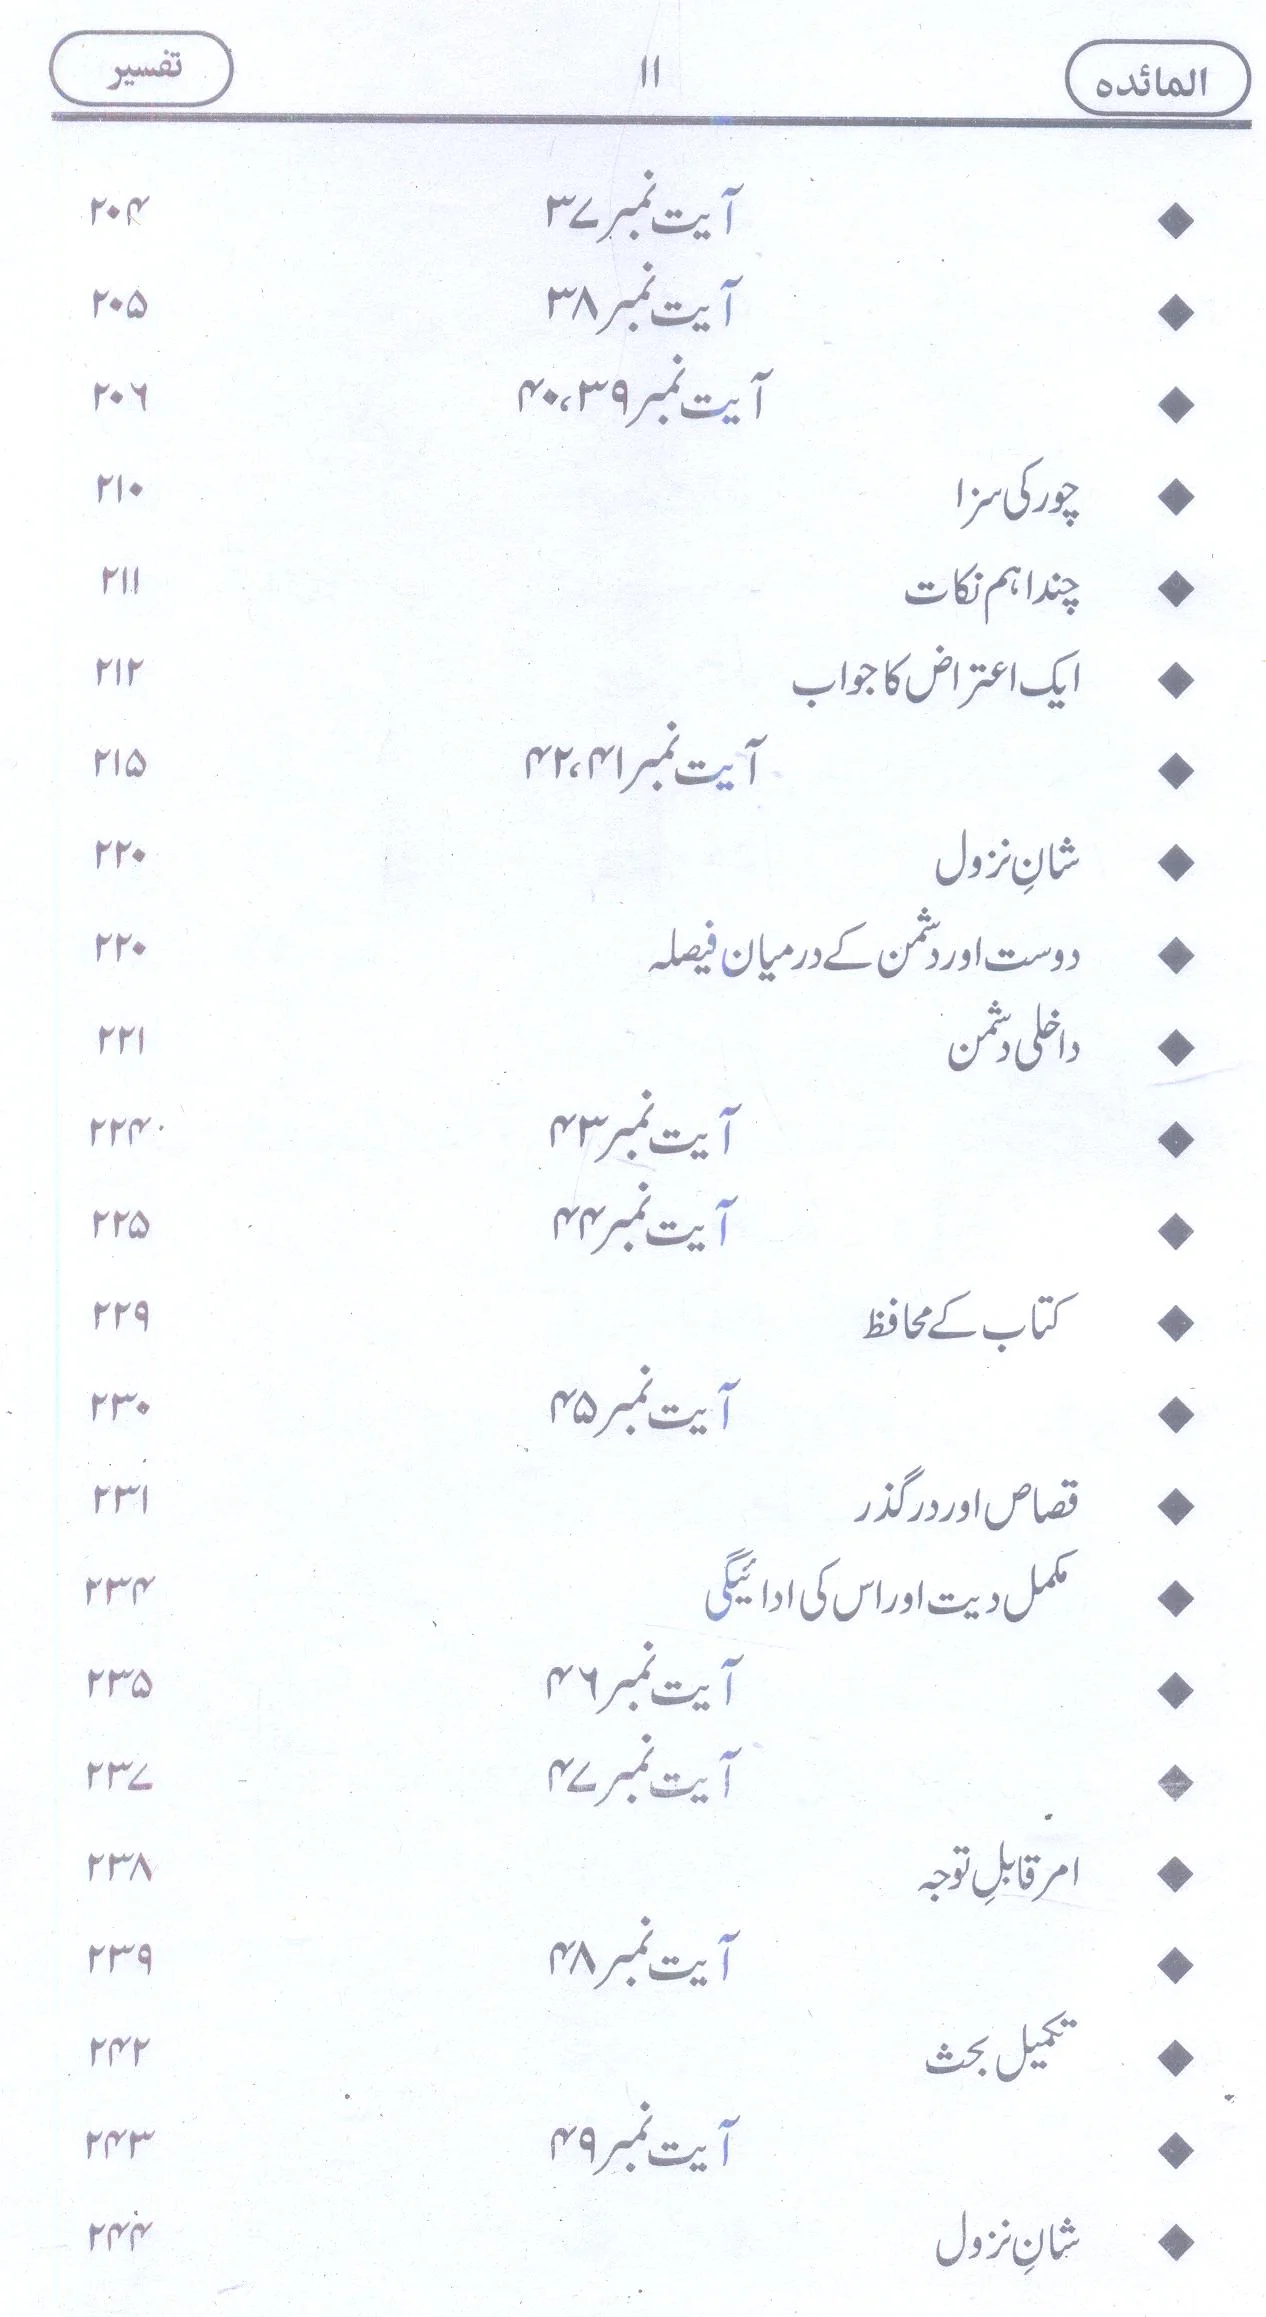 المائدہ ۱۱ تفسیر
◆ آیت نمبر ۳۷ ۲۰۴
◆ آیت نمبر ۳۸ ۲۰۵
◆ آیت نمبر ۳۹،۴۰ ۲۰۶
◆ چور کی سزا ۲۱۰
◆ چند اہم نکات ۲۱۱
◆ ایک اعتراض کا جواب ۲۱۲
◆ آیت نمبر ۴۱،۴۲ ۲۱۵
◆ شانِ نزول ۲۲۰
◆ دوست اور دشمن کے درمیان فیصلہ ۲۲۰
◆ داخلی دشمن ۲۲۱
◆ آیت نمبر ۴۳ ۲۲۴
◆ آیت نمبر ۴۴ ۲۲۵
◆ کتاب کے محافظ ۲۲۹
◆ آیت نمبر ۴۵ ۲۳۰
◆ قصاص اور درگذر ۲۳۱
◆ مکمل دیت اور اس کی ادائیگی ۲۳۴
◆ آیت نمبر ۴۶ ۲۳۵
◆ آیت نمبر ۴۷ ۲۳۷
◆ امر قابلِ توجہ ۲۳۸
◆ آیت نمبر ۴۸ ۲۳۹
◆ تکمیل بحث ۲۴۲
◆ آیت نمبر ۴۹ ۲۴۳
◆ شانِ نزول ۲۴۴